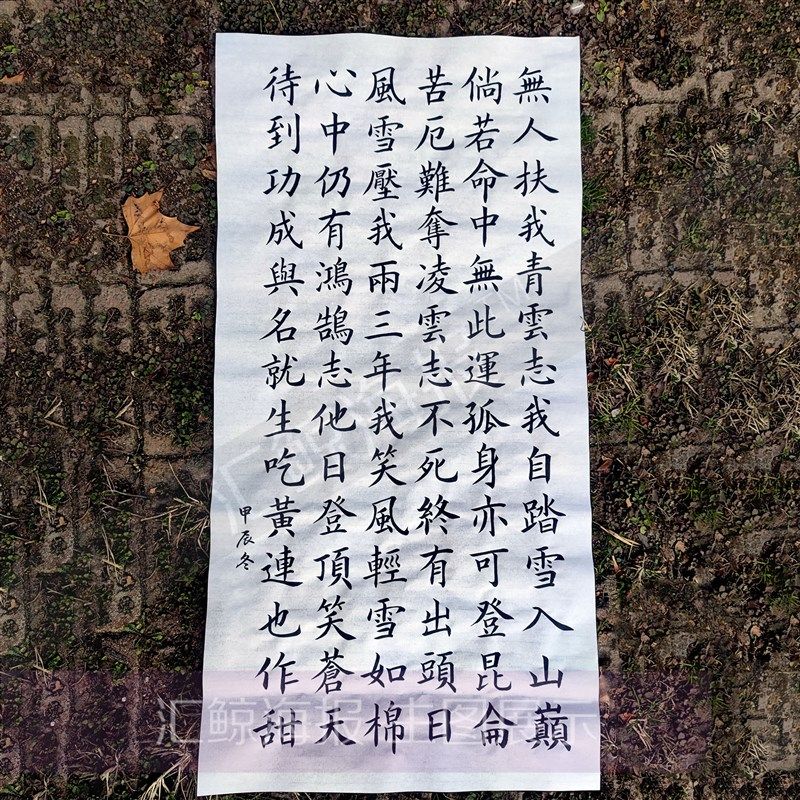 無人扶我青雲志我自踏雪入山巔
倘若命中無此運孤身亦可登昆侖
苦厄難奪凌雲志不死終有出頭日
風雪壓我兩三年我笑風輕雪如棉
心中仍有鴻鵠志他日登頂笑蒼天
待到功成與名就生吃黃連也作甜
甲辰冬
汇鲸海报